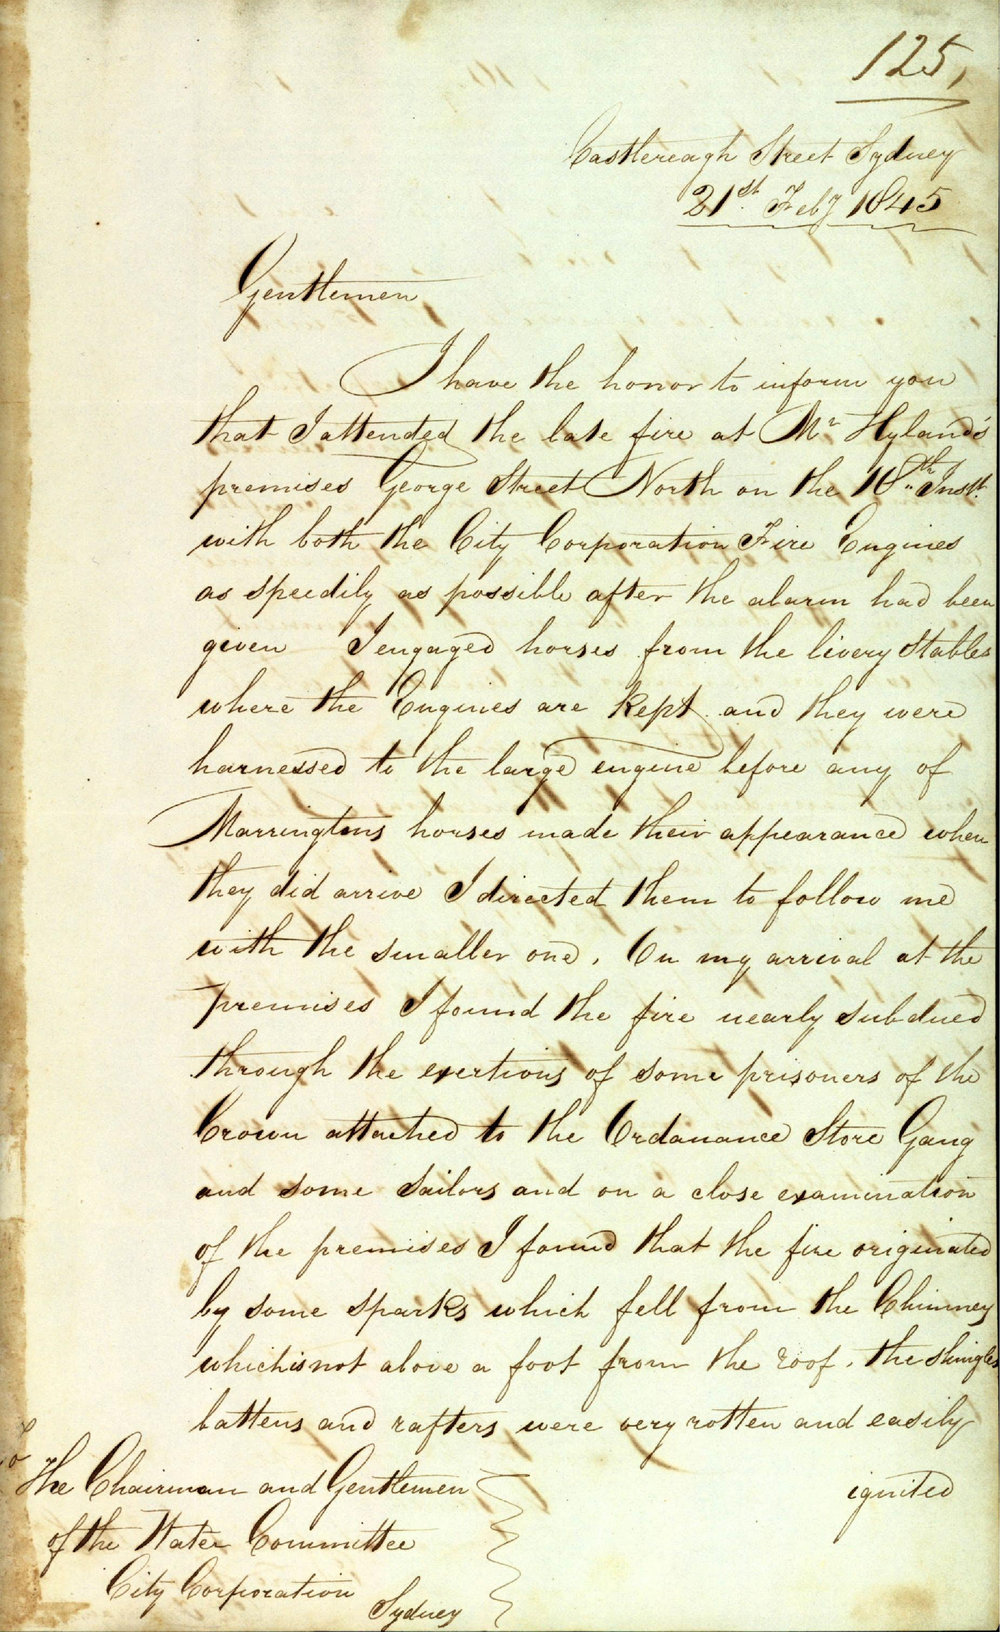 125,
Castlereagh Street Sydney
21st. Feby 1845
Gentlemen
I have the honor to inform you
that I attended the late fire at Mr Hyland's
premises George Street North on the 18th Inst.
with both the City Corporation Fire Engines
as speedily as possible after the alarm had been
given I engaged horses from the livery Stables
where the Engines are kept and they were
harnessed to the large engine before any of
Marringtons horses made their appearance when
they did arrive I directed them to follow me
with the smaller one. On my arrival at the
premises I found the fire nearly subdued
through the exertions of some prisoners of the
Crown attached to the Ordanance Store Gang
and some Sailors and on a close examination
of the premises I found that the fire originated
by some sparks which fell from the Chimney
which is not above a foot from the roof. the shingles
battens and rafters were very rotten and easily
ignited
To
The Chairman and Gentlemen
of the Water Committee
City Corporation
Sydney